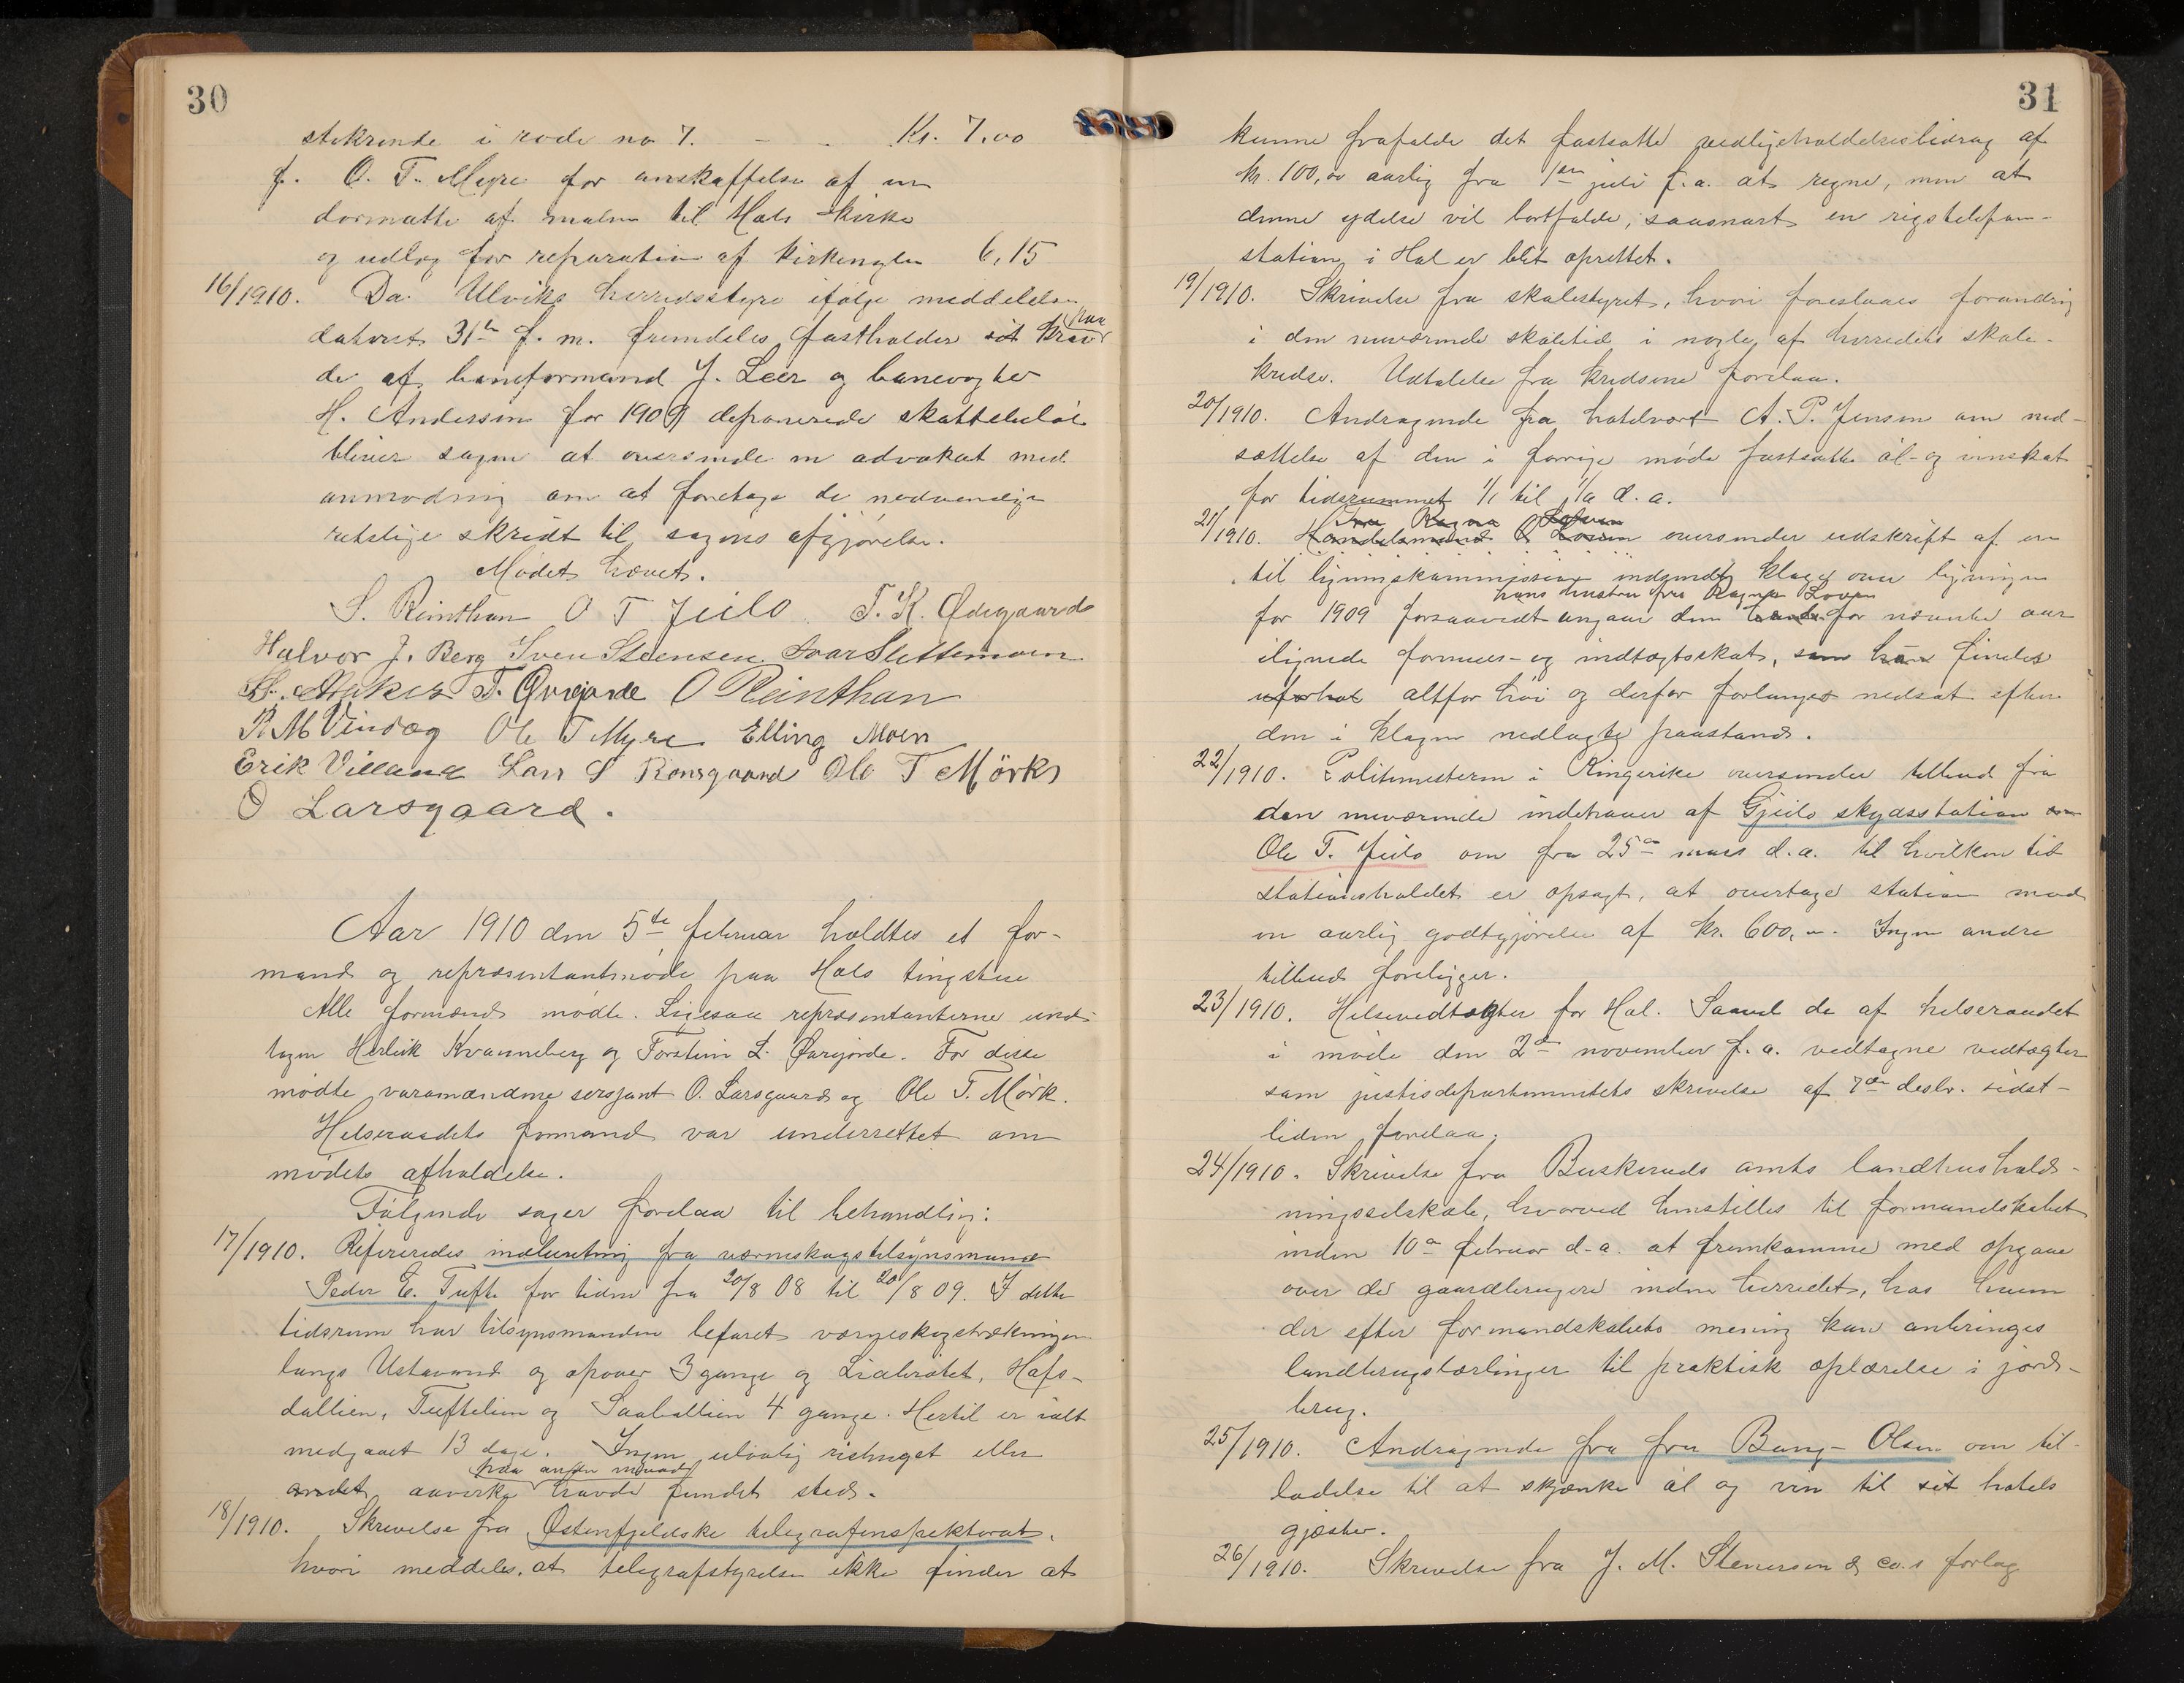 30
stikrende i rode no 7. - - Kr. 7,00
f. O. T. Myre for anskaffelse af en
dormatte af malm til Hols kirke
og udlæg for reparation af kirkenøglen 6,15
16/1910. Da Ulviks herredsstyre ifølge meddelelse
dateret 31te f. m. fremdeles fastholder sit krav paa
de af baneformand J. Leer og banevogter
H. Andersen for 1909 deponerede skattebeløb
bliver sagen at oversende en advokat med
anmodning om at foretage de nødvendige
retslige skridt til sagens afgjørelse.
Mødet hævet.
S. Reinthan O T Jeilo T. K. Ødegaard
Halvor J. Berg Sven Steensen Ivar Slettemoen
T. Øvrejorde O Reinthan
R M Vindeg Ole T Myre Elling Moen
Erik Villand Lars S Rønsgaard Ole T Mörk
O Larsgaard.
Aar 1910 den 5te februar holdtes et for-
mands og repræsentantmøde paa Hols tingstue
Alle formænd mødte. Ligesaa repræsentanterne und-
tagen Herbrik Kvanneberg og Torstein L. Øvrejorde. For disse
mødte varamændene sersjant O. Larsgaard og Ole T. Mörk.
Helseraadets formand var underrettet om
mødets afholdelse.
Følgende sager forelaa til behandling:
17/1910. Refereredes indberetning fra værneskogstilsynsmand
Peder E. Tufte for tiden fra 20/8 08 til 20/8 09. I dette
tidsrum har tilsynsmanden befaret værneskogstrækningen
langs Ustavand og opover 3 gange og Liabrotet, Hafs-
dallien, Tuftelien og Saaballien 4 gange. Hertil er ialt
medgaaet 13 dage. Ingen ulovlig rishuget eller
paa anden maade
andet aavirke havde fundet sted.
18/1910. Skrivelse fra Østenfjeldske telegrafinspektorat,
hvori meddeles, at telegrafstyrelsen ikke finder at
31
kunne frafalde det fastsatte vedligeholdelsesbidrag af
kr. 100,00 aarlig fra 1ste juli f. a. at regne, men at
denne ydelse vil bortfalde, saasnart en rigstelefon-
station i Hol er blit oprettet.
19/1910. Skrivelse fra skolestyret, hvori foreslaaes forandring
i den nuværende skoletid i nogle af herredets skole-
kredse. Udtalelse fra kredsene forelaa.
20/1910. Andragende fra hotelvært A. P. Jensen om ned-
sættelse af den i forrige møde fastsatte øl- og vinskat
for tidsrummet 1/1 til 1/ d. a.
Fru Ragna Loven
21/1910. Handelsmand O Loven oversender udskrift af en
til ligningskommissionen indsendt klage over ligningen
hans hustru fru Ragna Loven
for 1909 forsaavidt angaar den for nævnte aar
ilignede formues- og indtægtsskat, som han findes
altfor høi og derfor forlanges nedsat efter
den i klagen nedlagte paastand.
22/1910. Politimesteren i Ringerike oversender tilbud fra
den nuværende indehaver af Gjeilo skydsstation
Ole T. Jeilo om fra 25de mars d. a. til hvilken tid
stationsholdet er opsagt, at overtage station mod
en aarlig godtgjørelse af kr. 600,00. Ingen andre
tilbud foreligger.
23/1910. Helsevedtægter for Hol. Saavel de af helseraadet
i møde den 2den november f. a. vedtagne vedtægter
som justisdepartementets skrivelse af 7de desbr. sidst-
liden forelaa.
24/1910. Skrivelse fra Buskeruds amts landhushold-
ningsselskab, hvorved henstilles til formandskabet
inden 10de februar d. a. at fremkomme med opgave
over de gaardbrugere inden herredet, hos hvem
der efter formandskabets mening kan anbringes
landbrugslærlinger til praktisk oplærelse i jord-
brug.
25/1910. Andragende fra fru Bang-Olsen om til-
ladelse til at skjænke øl og vin til sit hotels
gjæster.
26/1910. Skrivelse fra J. M. Stenersen & co.s forlag